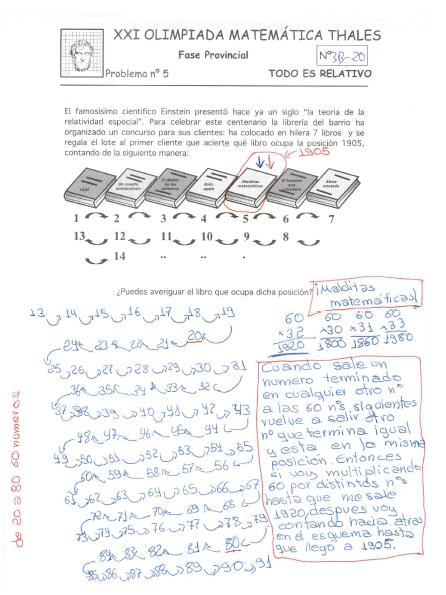 XXI OLIMPIADA MATEMÁTICA THALES
Fase Provincial
Nº 3B-20
Problema nº 5
TODO ES RELATIVO
El famosísimo científico Einstein presentó hace ya un siglo "la teoría de la
relatividad especial". Para celebrar este centenario la librería del barrio ha
organizado un concurso para sus clientes: ha colocado en hilera 7 libros y se
regala el lote al primer cliente que acierte qué libro ocupa la posición 1905,
contando de la siguiente manera:
1905
Malditas matemáticas
1 2 3 4 5 6 7
13 12 11 10 9 8
14 .. .. .
¿Puedes averiguar el libro que ocupa dicha posición?
¡Malditas
matemáticas!
13 14 15 16 17 18 19
24 23 22 21 20
25 26 27 28 29 30 31
36 35 34 33 32
37 38 39 40 41 42 43
48 47 46 45 44
49 50 51 52 53 54 55
60 59 58 57 56
61 62 63 64 65 66 67
72 71 70 69 68
73 74 75 76 77 78 79
84 83 82 81 80
85 86 87 88 89 90 91
60 60 60 60
x32 x30 x31 x33
1920 1800 1860 1980
Cuando sale un
numero terminado
en cualquier otro nº
a las 60 nºs, siguientes
vuelve a salir otro
nº que termina igual
y esta en la misma
posición. Entonces
si voy multiplicando
60 por distintos nºs
hasta que me sale
1920, despues voy
contando hacia atras
en el esquema hasta
que llego a 1905.
de 20 a 80 60 numeros